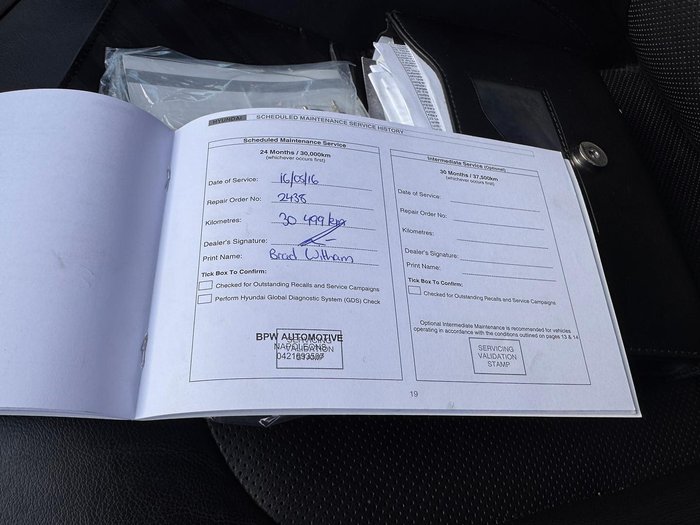 HYUNDAI SCHEDULED MAINTENANCE SERVICE HISTORY
Scheduled Maintenance Service
24 Months / 30,000km
(whichever occurs first)
Date of Service: 16/05/16
Repair Order No: 2438
Kilometres: 30 499 km
Dealer's Signature:
Print Name: Brad Witham
Tick Box To Confirm:
Checked for Outstanding Recalls and Service Campaigns
Perform Hyundai Global Diagnostic System (GDS) Check
BPW AUTOMOTIVE
SERVICING
VALIDATION
STAMP
Intermediate Service (Optional)
30 Months / 37,500km
(whichever occurs first)
Date of Service:
Repair Order No:
Kilometres:
Dealer's Signature:
Print Name:
Tick Box To Confirm:
Checked for Outstanding Recalls and Service Campaigns
Optional Intermediate Maintenance is recommended for vehicles
operating in accordance with the conditions outlined on pages 13 & 14
SERVICING
VALIDATION
STAMP
19